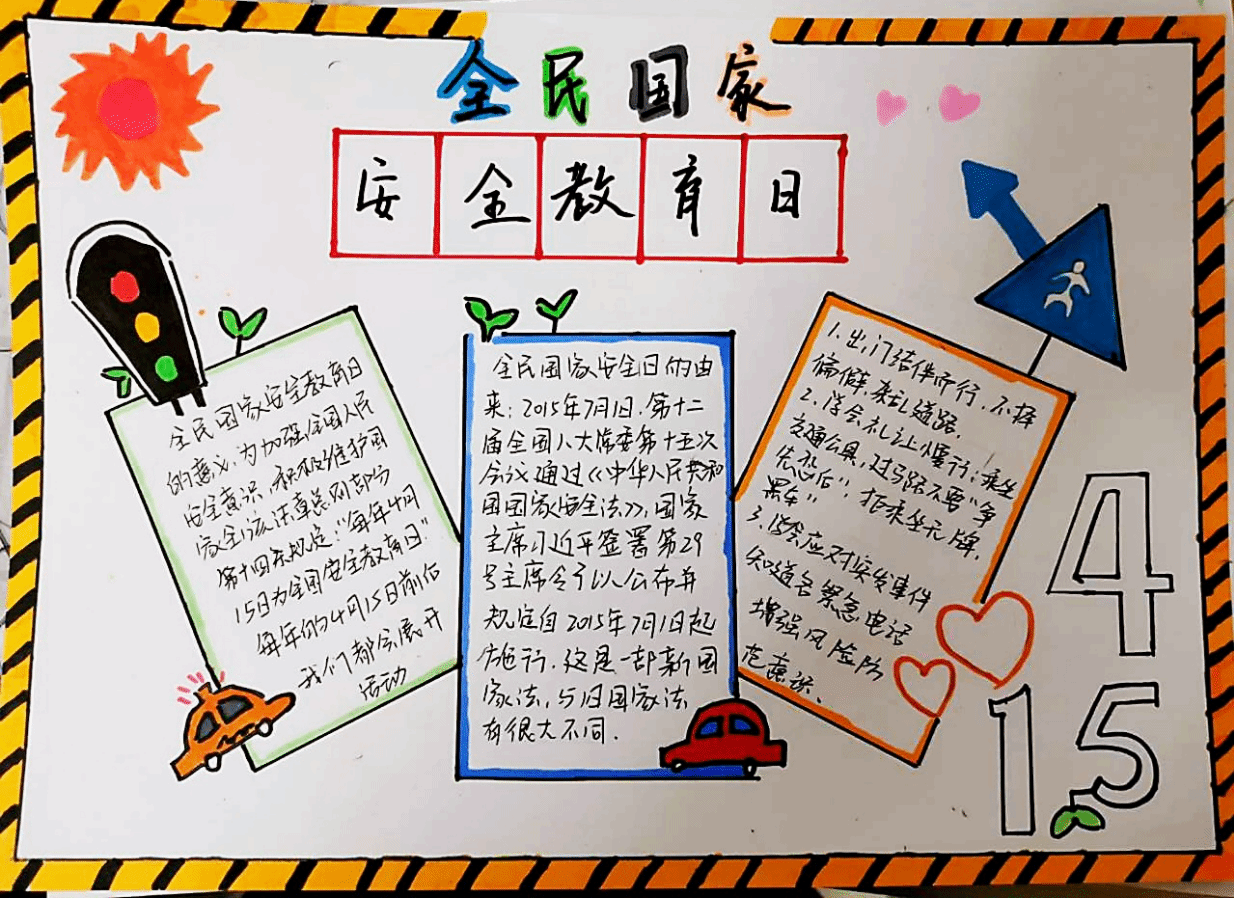 全民国家
安全教育日
全民国家安全教育日
的意义:为加强全国人民
安全意识,积极维护国
家全该法草总则部分
第十四条规定:"每年4月
15日为全国安全教育日."
每年的4月15日前后
我们都会展开
活动
全民国家安全日的由
来:2015年7月1日.第十二
届全国人大常委第十五次
会议通过《中华人民共和
国国家安全法》,国家
主席习近平签署第29
号主席令予以公布并
规定自2015年7月1日起
施行.这是一部新国
家法,与旧国家法
有很大不同.
1.出门结伴而行,不择
偏僻杂乱道路.
2.学会礼让慢行:乘坐
交通公具,过马路不要"争
先恐后",拒乘坐无牌.
黑车"
3.学会应对突发事件
知道各紧急电话
增强风险防
范意识.
4
15